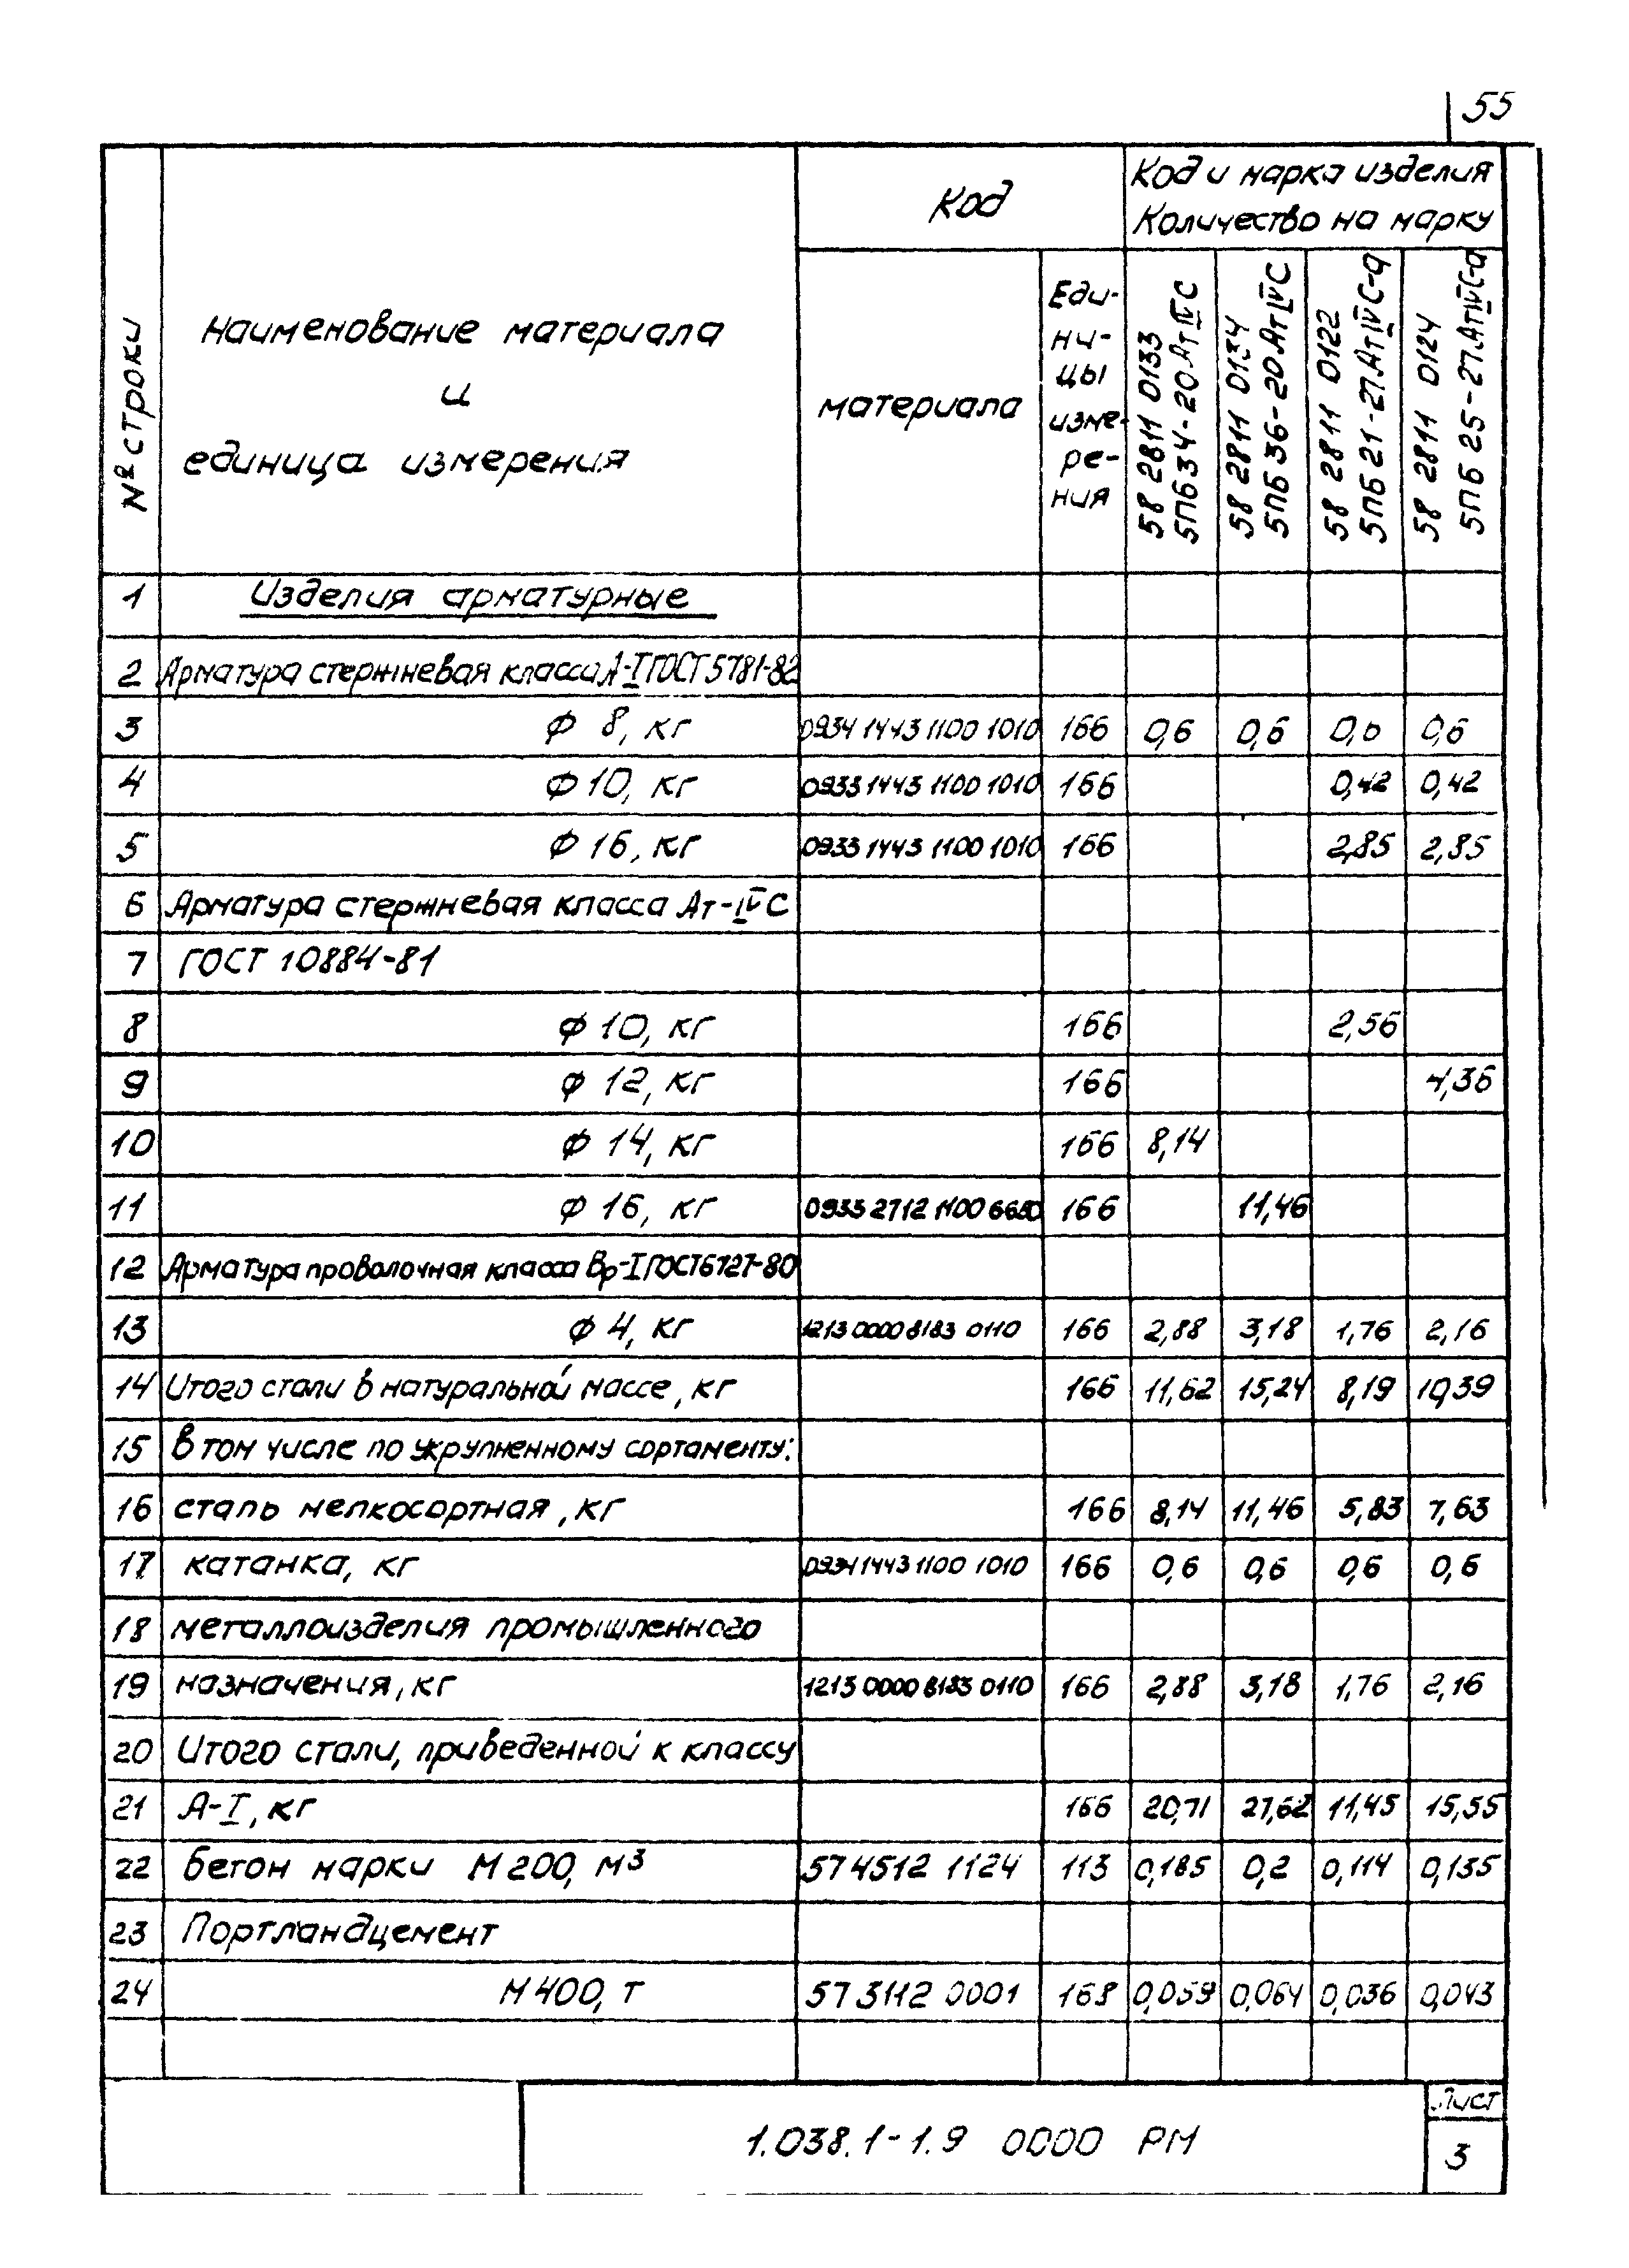 55
№ строки
Наименование материала
и
единица измерения
Код
Код и марка изделия
Количество на марку
материала
Еди-
ни-
цы
изме-
ре-
ния
58 2811 0133
5ПБ34-20.АтIVС
58 2811 0134
5ПБ36-20.АтIVС
58 2811 0122
5ПБ21-27.АтIVС-а
58 2811 0124
5ПБ25-27.АтIVС-а
1 Изделия арматурные
2 Арматура стержневая класса А-I ГОСТ 5781-82
3 Ф 8, кг 0934 1443 1100 1010 166 0,6 0,6 0,6 0,6
4 Ф 10, кг 0933 1443 1100 1010 166 0,42 0,42
5 Ф 16, кг 0933 1443 1100 1010 166 2,85 2,85
6 Арматура стержневая класса Ат-IVС
7 ГОСТ 10884-81
8 Ф 10, кг 166 2,56
9 Ф 12, кг 166 4,36
10 Ф 14, кг 166 8,14
11 Ф 16, кг 0933 2712 1100 166 11,46
12 Арматура проволочная класса Вр-I ГОСТ 6727-80
13 Ф 4, кг 1213 0000 8183 0110 166 2,88 3,18 1,76 2,16
14 Итого стали в натуральной массе, кг 166 11,62 15,24 8,19 10,39
15 в том числе по укрупненному сортаменту:
16 сталь мелкосортная, кг 166 8,14 11,46 5,83 7,63
17 катанка, кг 0934 1443 1100 1010 166 0,6 0,6 0,6 0,6
18 металлоизделия промышленного
19 назначения, кг 1213 0000 8183 0110 166 2,88 3,18 1,76 2,16
20 Итого стали, приведенной к классу
21 А-I, кг 166 20,71 27,62 11,45 15,55
22 Бетон марки М 200, м³ 574512 1124 113 0,185 0,2 0,114 0,135
23 Портландцемент
24 М 400, т 573112 0001 168 0,059 0,064 0,036 0,043
1.038.1-1.9 0000 РМ
Лист
3